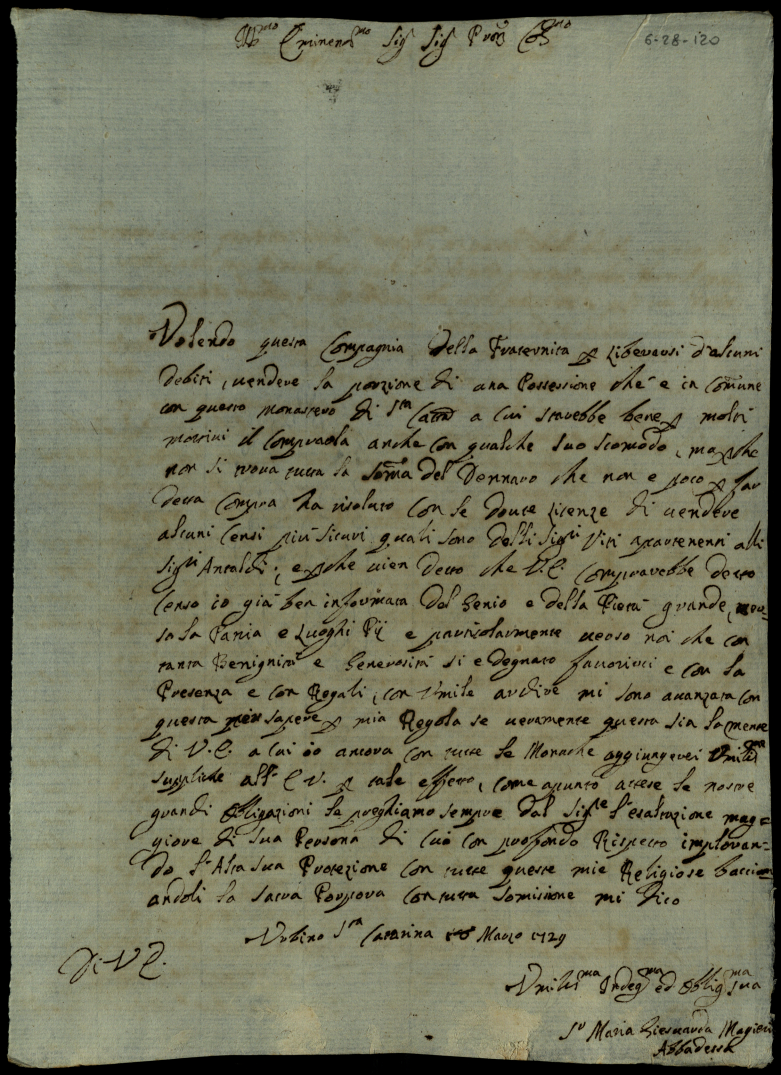 Ill.mo Eminen.mo Sig.r Sig.r Pron Col.mo
6-28-120
Volendo questa Compagnia della Fraternita p liberarsi d'alcuni
debiti, vendere la porzione di una Possessione che è in comune
con questo Monastero di S.ta Catta a cui starebbe bene p molti
mottivi il comprarla anche con qualche suo scomodo, ma p che
non si trova tutta la somma del Dennaro che non e poco p far
detta compra ha risoluto con le dovute licenze di vendere
alcuni Censi piu sicuri quali sono delli Sig.ri Viti apartenenti alli
Sig.ri Antaldi; e p che vien detto che V.E. comprarebbe detto
Censo io già ben informata del Genio e della Pietà grande, ver=
so la Patria e Luoghi Pij e particolarmente verso noi che con
tanta Benignità e Generosità si e degnato favorirci e con la
Presenza e con Regali, con Umile ardire mi sono avanzata con
questa sapere p mia Regola se veramente questa sia la mente
di V.E. a cui io ancora con tutte le Monache aggiungerei Umiliss.me
suppliche all' E.V. p tale effetto, come apunto attese le nostre
grandi obligazioni le preghiamo sempre dal Sig.re l'esaltazione mag=
giore di sua Persona di cui con profondo Rispetto imploran=
do l'Alta sua Protezione con tutte queste mie Religiose bacci=
andoli la sacra Porpora con tutta somissione mi dico
Urbino S.ta Catarina Marzo 1729
Di V.E.
Umilis.ma Indeg.ma ed Oblig.ma sua
S.r Maria Abbadessa